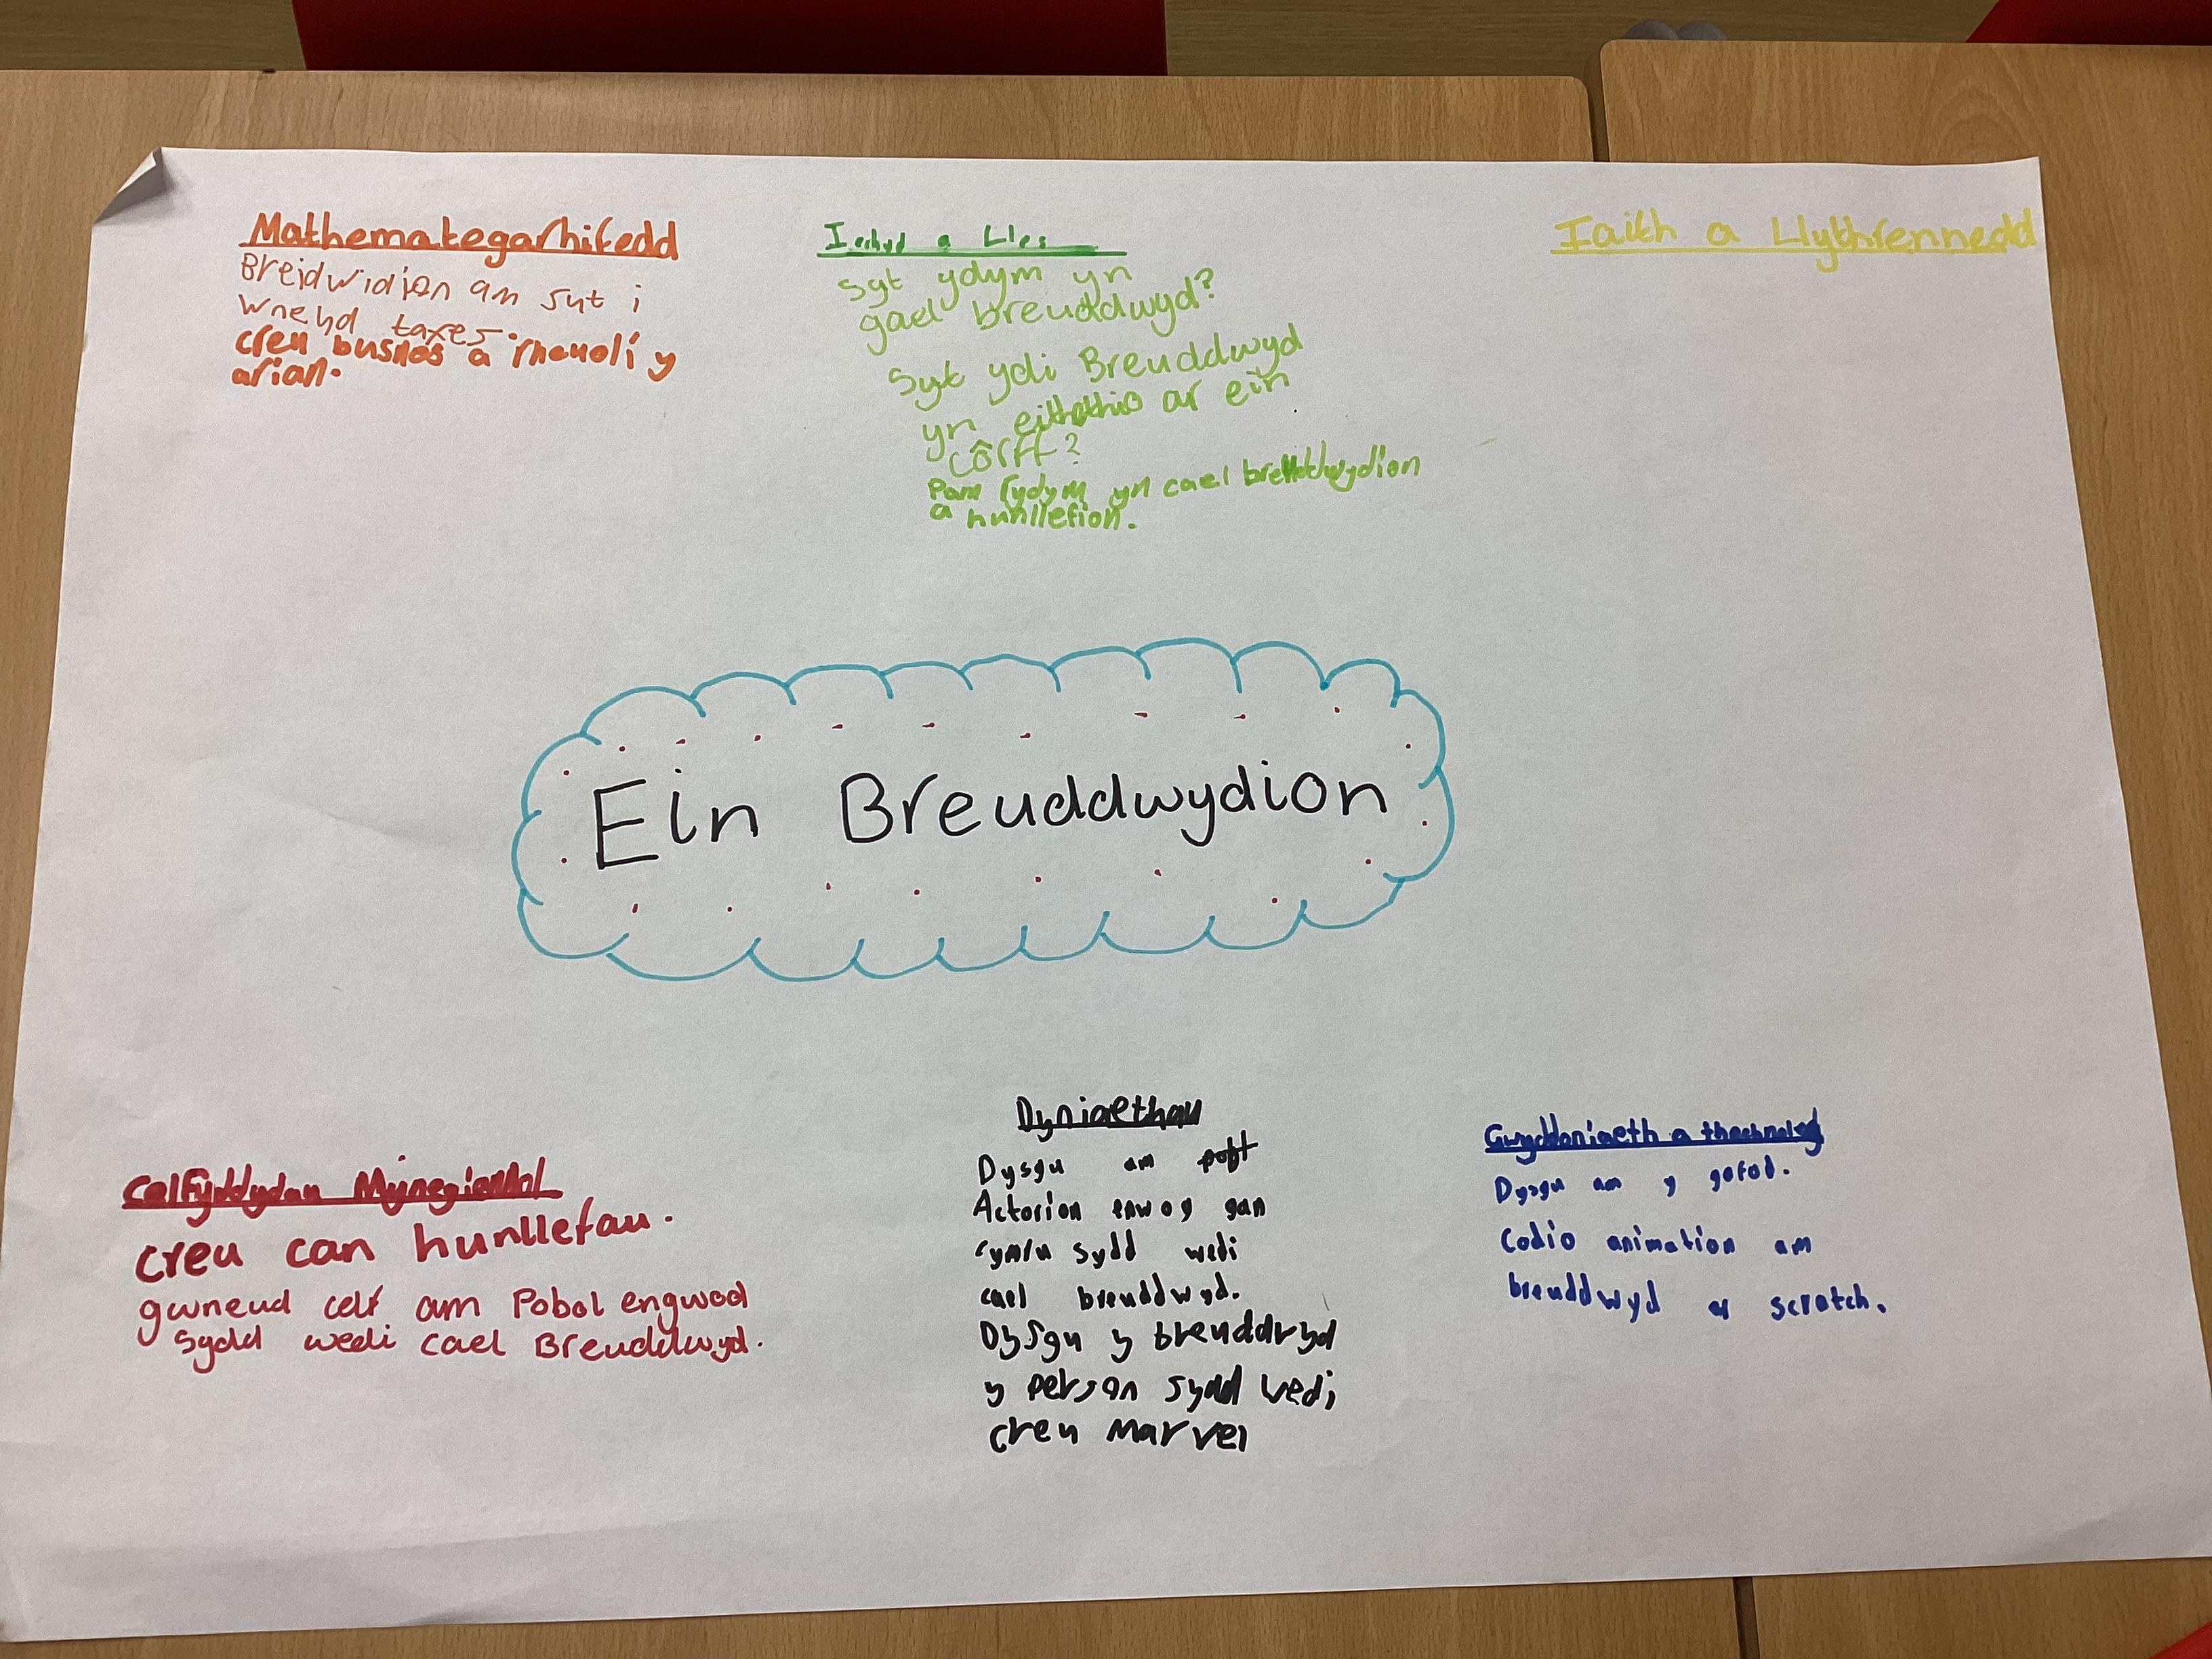 Mathemategarhifedd
Breidwidion am syt i
wneyd taxes.
creu busnes a rheuoli y
arian.
Iechyd a Lles
Syt ydym yn
gael breuddwyd?
Syt ydi Breuddwyd
yn ar ein
côrff?
Pam rydym yn cael breuddwydion
a hunllefion.
Iaith a Llythrennedd
Ein Breuddwydion
Celfyddydau Mynegiannol
creu can hunllefau.
gwneud celf am Pobol engwod
sydd wedi cael Breuddwyd.
Dyniaethau
Dysgu am
Actorion enwog gan
cymru sydd wedi
cael breuddwyd.
Dysgu y breuddwyd
y person sydd wedi
creu Marvel
Gwyddoniaeth a thechnoleg
Dysgu am y gofod.
Codio animation am
breuddwyd ar scratch.